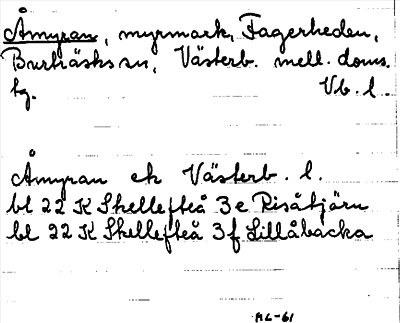 Åmyran, myrmark, Fagerheden,
Burträsks sn, Västerb. mell. doms.
tg. Vb. l.
Åmyran ek Västerb. l.
bl 22 K Skellefteå 3e Risåtjärn
bl 22 K Skellefteå 3f Lillåbacka
AL-61